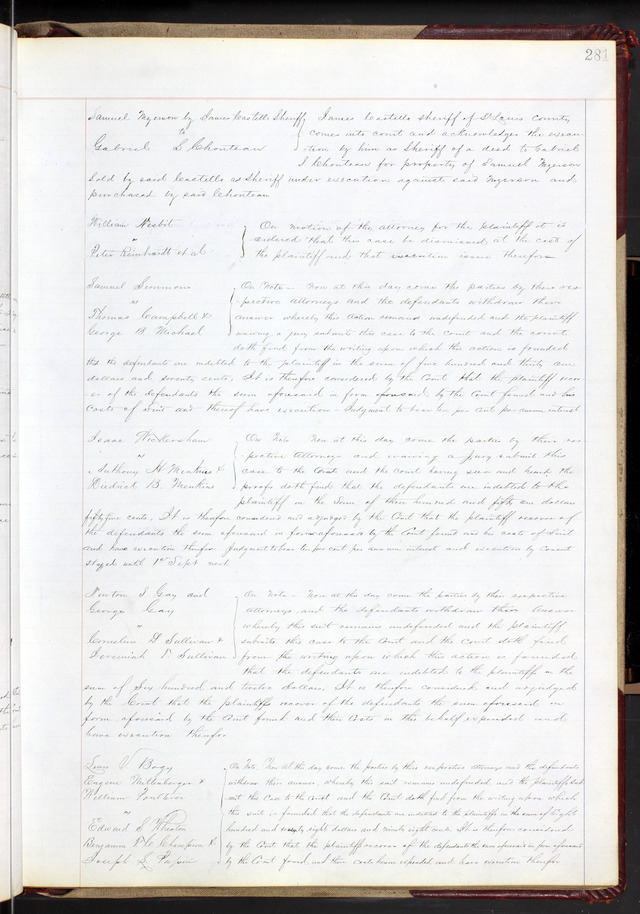 281
Samuel Myerson by James Castello Sheriff
to
Gabriel S. Chouteau
James Castello Sheriff of St Louis County
comes into court and acknowledges the execu-
tion by him as Sheriff of a deed to Gabriel
S Chouteau for property of Samuel Myerson
sold by said Castello as Sheriff under execution against said Myerson and
purchased by said Chouteau
William Nesbit
vs
Peter Reinhardt et al
On motion of the attorney for the plaintiff it is
ordered that this case be dismissed at the cost of
the plaintiff and that execution issue therefor
Samuel Simmons
vs
Thomas Campbell &
George B. Michael
On Note - Now at this day come the parties by their res-
pective attorneys and the defendants withdraw their
answer whereby this action remains undefended and the plaintiff
waiving a jury submits this case to the Court and the court
doth find from the writing upon which this action is founded
that the defendants are indebted to the plaintiff in the sum of five hundred and thirty one
dollars and seventy cents. It is therefore considered by the Court that the plaintiff recov-
er of the defendants the sum aforesaid in form aforesaid by the Court found and his
costs of suit and thereof have execution - Judgment to bear ten per cent per annum interest
Isaac Wickersham
vs
Anthony H Menkens &
Diedrich B. Menkens
On Note Now at this day come the parties by their res-
pective Attorneys and waiving a jury submit this
case to the Court and the court having seen and heard the
proofs doth find that the defendants are indebted to the
plaintiff in the sum of three hundred and fifty one dollars
fifty five cents. It is therefore considered and adjudged by the Court that the plaintiff recover of
the defendants the sum aforesaid in form aforesaid by the Court found and his costs of suit
and have execution therefor Judgment to bear ten per cent per annum interest and execution by consent
stayed until 1st Sept next
Newton J Gay and
George Gay
vs
Cornelius D Sullivan &
Jeremiah D. Sullivan
On Note - Now at this day come the parties by their respective
attorneys, and the defendants withdraw their Answer
whereby this suit remains undefended and the plaintiff
submits this case to the Court and the Court doth find
from the writing upon which this action is founded
that the defendants are indebted to the plaintiff in the
sum of Six hundred and twelve dollars. It is therefore considered and adjudged
by the Court that the plaintiffs recover of the defendants the sum aforesaid in
form aforesaid by the Court found and their Costs in this behalf expended and
have execution therefor
Louis V. Bogy
Eugene Miltenberger &
William
vs
Edward S. Wheaton
Benjamin W. G. Champion &
Joseph L. Papin
On Note. Now at this day come the parties by their respective attorneys and the defendants
withdraw their answer, whereby this suit remains undefended and the plaintiffs sub-
mit this case to the Court and the Court doth find from the writing upon which
this suit is founded that the defendants are indebted to the plaintiffs in the sum of Eight
hundred and eight dollars and ninety eight cents. It is therefore considered
by the Court that the plaintiffs recover of the defendants the sum aforesaid in form aforesaid
by the Court found and their costs herein expended and have execution therefor